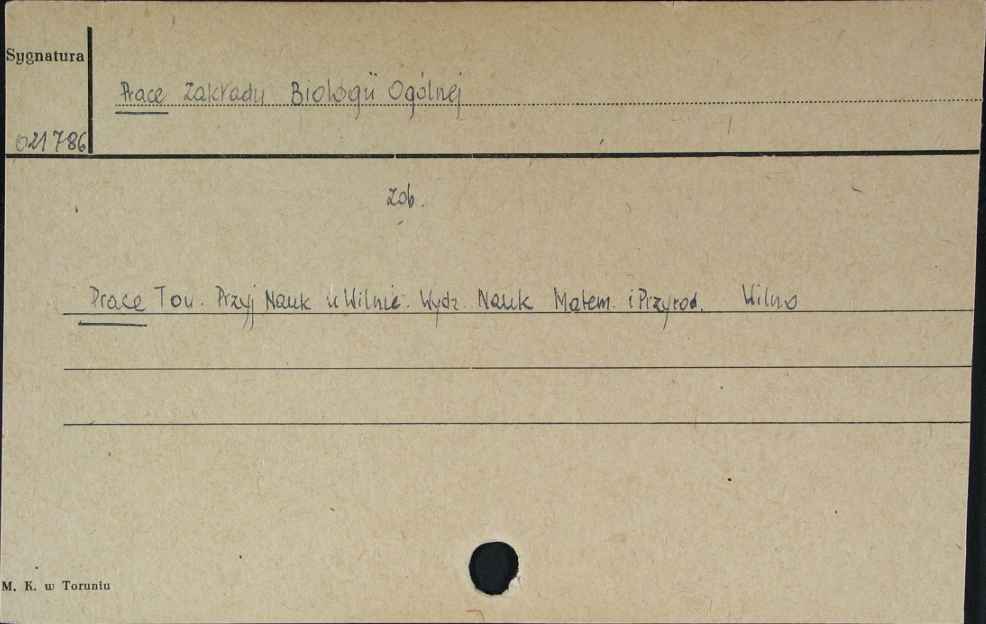 Sygnatura
Prace Zakładu Biologii Ogólnej
021786
Zob.
Prace Tow. Przyj Nauk w Wilnie. Wydz. Nauk Matem. i Przyrod. Wilno
M. K. w Toruniu